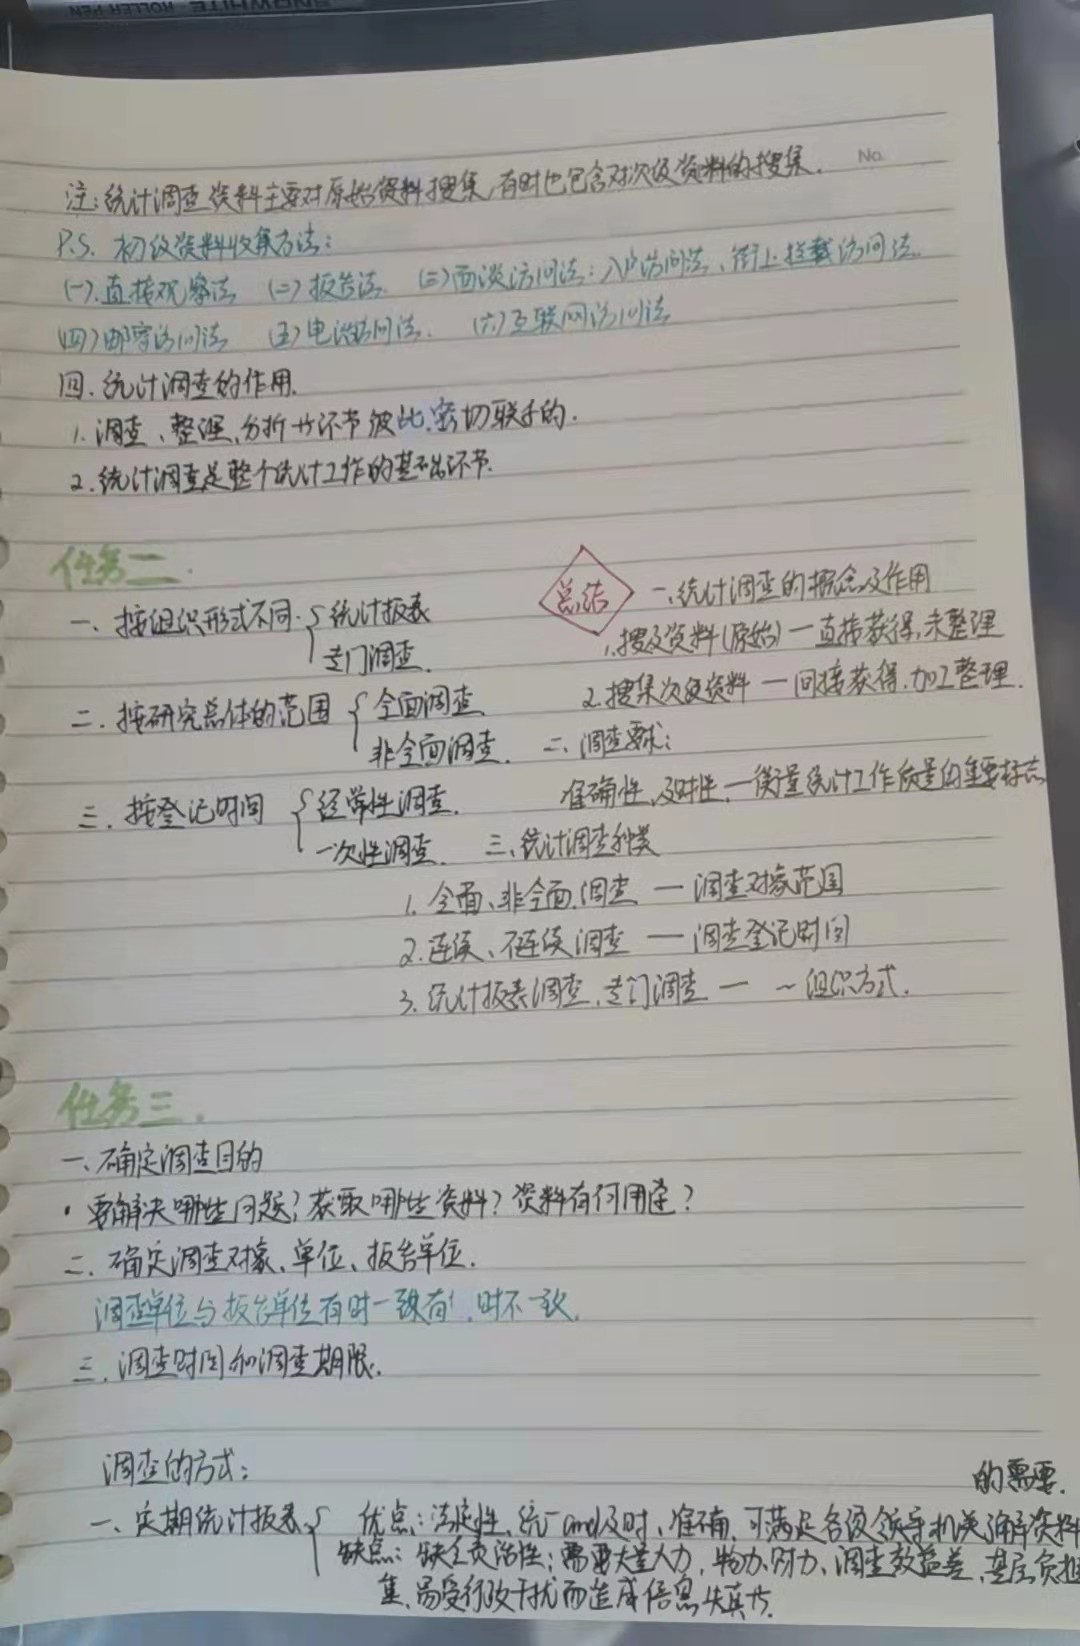 No.
注:统计调查资料主要对原始资料搜集,有时也包含对次级资料的搜集.
P.S. 初级资料收集方法:
(一).直接观察法 (二)报告法. (三)面谈访问法:入户访问法、街上拦截访问法.
(四)邮寄访问法 (五)电话访问法. (六)互联网访问法
四.统计调查的作用.
1.调查、整理、分析廿环节彼此密切联系的.
2.统计调查是整个统计工作的基础环节.
任务二.
一、按组织形式不同.{统计报表
专门调查.
二.按研究总体的范围{全面调查
非全面调查.
三.按登记时间{经常性调查.
一次性调查.
总结
一、统计调查的概念及作用
1.搜及资料(原始)一直接获得,未整理
2.搜集次级资料一间接获得.加工整理.
二、调查要求:
准确性、及时性.一衡量统计工作质量的重要标志
三、统计调查种类
1.全面、非全面.调查 一 调查对象范围
2.连续、不连续调查 一 调查登记时间
3.统计报表调查、专门调查 一 ~组织方式.
任务三.
一、确定调查目的
·要解决哪些问题?获取哪些资料?资料有何用途?
二.确定调查对象、单位、报告单位.
调查单位与报告单位有时一致有.时不一致.
三.调查时间和调查期限.
调查的方式:
的需要.
一、定期统计报表{优点:法定性、统一and及时、准确.可满足各级领导机关了解资料
缺点:缺乏灵活性;需要大量人力,物力.财力、调查效益差、基层负担
集.易受行政干扰而造成信息失真廿.